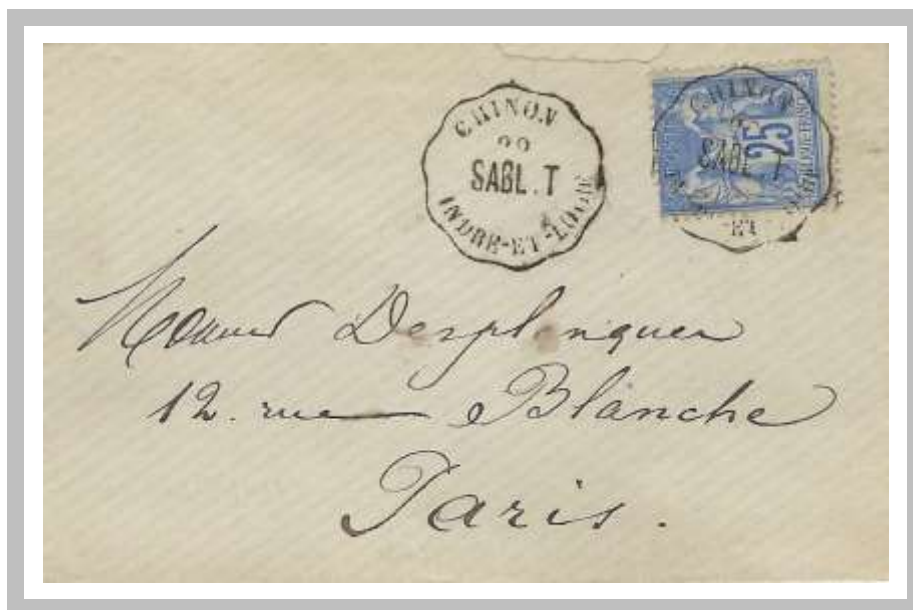 CHINON
99
SABL. T
INDRE-ET-LOIRE
CHINON
SABL. T
ET
25
Desplanques
12. rue Blanche
Paris.